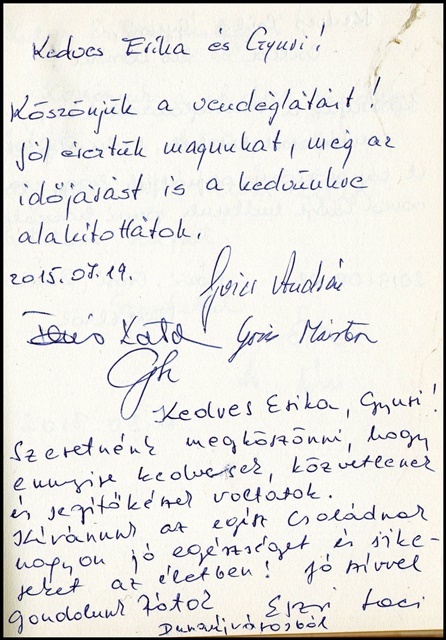 Kedves Erika és Gyuri!
Köszönjük a vendéglátást!
Jól éreztük magunkat, még az
időjárást is a kedvünkre
alakítottátok.
2015.07.19.
András
Kata Márton
Kedves Erika, Gyuri!
Szeretnénk megköszönni, hogy
ennyire kedvesek, közvetlenek
és segítőkészek voltatok.
Kívánunk az egész családnak
nagyon jó egészséget és sike-
reket az életben! Jó szívvel
gondolunk Rátok Eszti Laci
Dunaújvárosból